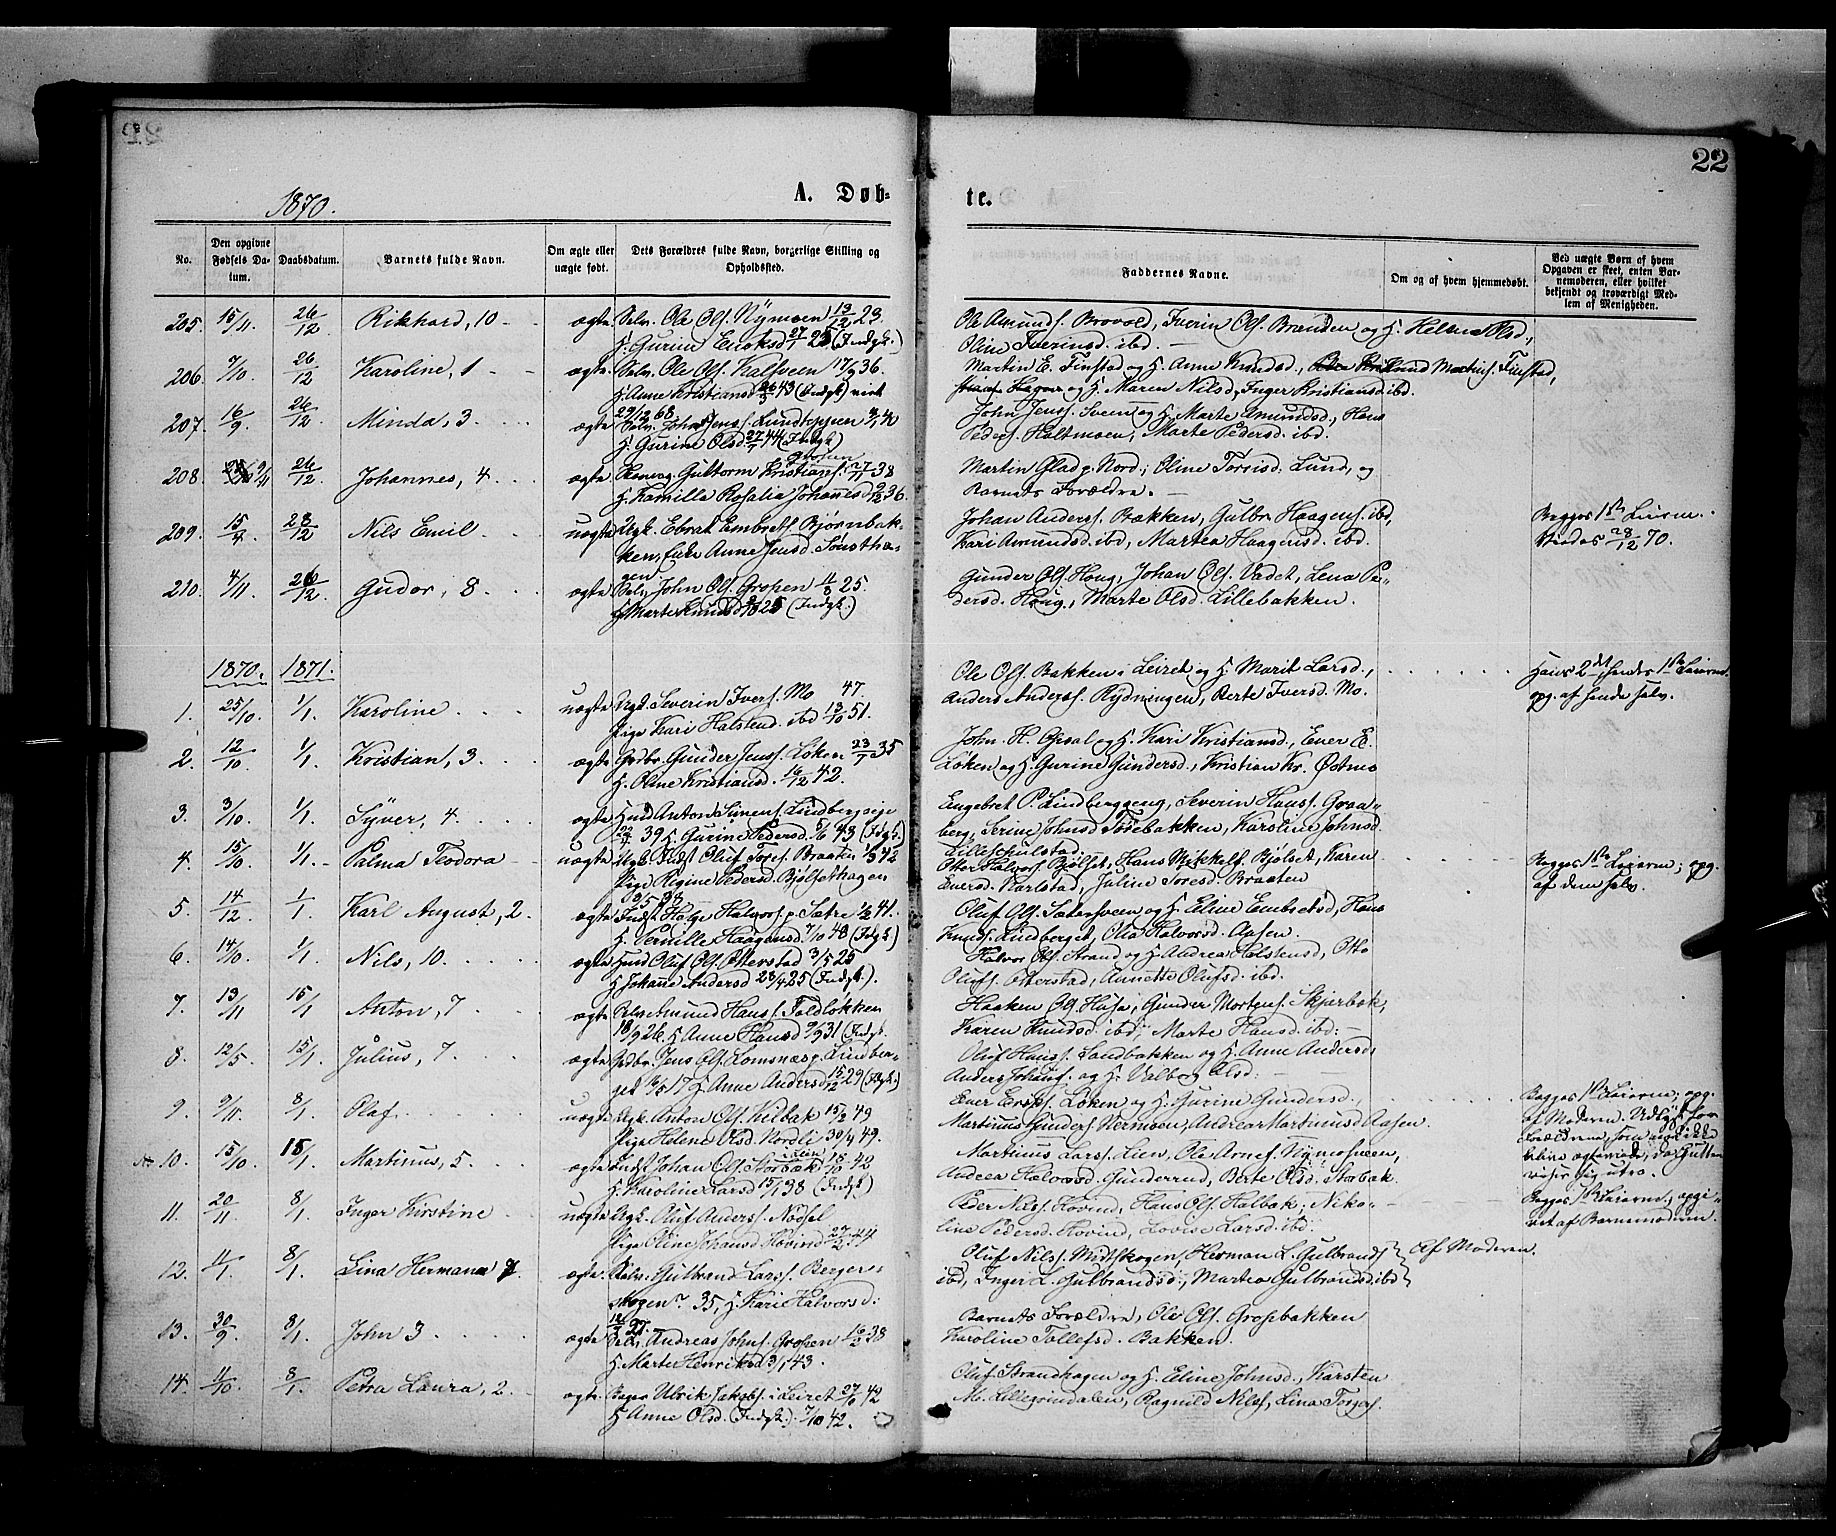 22
1870.
A. Døb-
te.
No.
Den opgivne Fødsels Da-tum.
Daabsdatum.
Barnets fulde Navn.
Om ægte eller uægte født.
Dets Forældres fulde Navn, borgerlige Stilling og Opholdssted.
Faddernes Navne.
Om og af hvem hjemmedøbt.
Ved uægte Børn af hvem Opgaven er skeet, enten Bar-nemoderen, eller hvilket bekjendt og troværdigt Med-lem af Menigheden.
205. 15/11 26/12 Rikhard, 10 ægte Selv. Ole Ols. Nÿmoen 13/12 23
H. Gurine Eriksd (Indgk.)
Ole Amunds. Brovold, Iverin Ols. Branden og H. Helene Olsd.,
Oline Iverinsd. ibd.
206. 7/10. 26/12 Karoline, 1 ægte Selv. Ole Ols. Kalfveen 17/9 36.
H. Anne Kristiansd 43 (Indgk) viet
29/12 68.
Martin E. Finstad og H. Anne Knudsd., Martins. Finstad,
og H. Maren Nilsd, Inger Kristiansd ibd.
207. 16/9. 26/12 Minda, 3 ægte Selv. Johs Jens. Lundteppen
H. Gurine Olsd 44 (Indgk)
John Jenss. Sveen og H. Marte Amundsd., Hans
Peders. Haltmoen, Marte Pedersd. ibd.
208. 9/11 26/12 Johannes, 4 ægte Guttorm Kristians. 38
H. Kamilla Rosalia Johannesd 9/12 36.
Martin Glad p. Nord; Oline Torrisd. Lund, og
Barnets Forældre.
209. 28/12 Nils Emil uægte Ungk. Ebrat Embrets. Bjørnbak-
ken, Anne Jensd. Sønstha-
gen.
Johan Anderss. Bakken, Gulbr. Haagens. ibd,
Kari Amundsd ibd, Martea Haagensd. ibd.
Begges 1ste Leierm.
28/12 70.
210. 4/11. 26/12 Gudor, 8 ægte Selv. John Ols. Grosen 11/8 25.
H. Marte Knudsd 25 (Indgk.)
Gunder Ols. Houg, Johan Ols. Vadet, Lena Pe-
dersd. Houg, Marte Olsd. Lillebakken.
1870. 1871.
1. 25/10. 1/1. Karoline uægte Ungk. Severin Ivers. Mo 47.
Pige Kari Halstensd. ibd 13/10 51.
Ole Ols. Bakken i Leiret og H. Marit Larsd.,
Anders Anderss. Rydningen, Berte Iversd. Mo.
Hans 2det hendes 1ste Leierm.
opg. af hende selv.
2. 12/10. 1/1. Kristian, 3 ægte Grdbr. Gunder Jenss. Løken 23/7 35
H. Oline Kristiansd. 16/12 42.
John H. Opsal og H. Kari Kristiansd., Ever E.
Løken og H. Gurine Gundersd., Kristian Kr. Østmo
3. 3/10. 1/1. Syver, 4. ægte Husmd Anton Simens. Lindbergseje
22/7 39 H. Gurine Pedersd. 5/6 43 (Idgk.)
Engebret P. Lindberggeng, Severin Hanss. Graa-
berg, Serine Johnsd Torebakken, Karoline Johnsd.
Lilleskulstad.
4. 15/10. 1/1. Palma Teodora uægte Ungk. Indst Oluf Tores. Braaten 1/3 42
Pige Regine Pedersd. Bjølsethagen
Otter Halvors. Bjølset, Hans Mikkels. Bjølset, Karen
Eversd. Karlstad, Juline Toresd. Braaten
Begges 1ste Leierm; opg.
af dem selv.
5. 14/12. 1/1. Karl August, 2. ægte Indst. Helge Halvors. p. Sætre 41.
H. Pernille Haagensd. 7/10 48 (Idgk.)
Oluf Ols. Sætersveen og H. Eline Embretsd, Hans
Knuds. Lindberget, Olia Halvorsd. Aasen.
6. 14/10. 1/1. Nils, 10. ægte Husmd Oluf Ols. Otterstad 3/5 25
H. Johane Andersd 23/4 25 (Indgk.).
Halvor Ols. Strand og H. Andrea Holstensd, Otto
Olufs. Otterstad, Annette Olufsd. ibd.
7. 13/11. 15/1 Anton, 7 ægte Selv. Amund Hans. Foldløkken
18/9 26. H. Anne Hansd 9/9 31 (Indgk.
Haaken Ols. Husa, Gunder Mortens. Skjærbæk,
Karen Knudsd. ibd. Marte Hansd. ibd.
8. 12/5. 15/1. Julius, 7. ægte Grdbr. Jens Ols. Lomsnæs p. Lindber-
get 16/5 17 H. Anne Andersd 15/12 29 (Idgk.)
Oluf Hanss. Sandbakken og H. Anne Andersd.
Anders Johans. og H. Valborg Olsd.
9. 9/11. 8/1. Olaf uægte Ungk. Anton Ols. Kilbak 15/2 49
Pige Helene Olsd. Nordli 30/4 49.
Ever Erss. Løken og H. Gurine Gundersd.,
Martinus Gunders. Nermoen, Andrea Martinusd Aasen.
Begges 1ste Leierm; opg.
af Moderen. Udsigt for
Forældrene, som nok ikke
blive ægteviede, da Gutten
viser sig utro.
10. 15/10. 15/1. Martinus, 5. ægte Indst Johan Ols. Storbæk i Lien 18/10 42
H. Karoline Larsd 15/1 38 (Indgk)
Martinus Larss. Lien, Ole Arnes. Nymosveen,
Andrea Halvorsd. Gunderud, Berte Olsd. Storbak.
11. 20/11. 8/1. Inger Kirstine uægte Ungk. Oluf Anders. Nødsel
Pige Oline Johansd. Hovind 27/2 44
Peder Nilss. Hovind, Hans Ols. Halbak, Niko-
line Pedersd. Hovind, Lovise Larsd. ibd.
Begges 1ste Leierm., opgi-
vet af Barnemoderen.
12. 11/1. 8/1. Lina Hermana 7. ægte Selv. Gulbrand Larss. Berger-
skogen 35, H. Kari Halvorsd.
Oluf Nilss. Midtskogen, Herman L. Gulbrands
ibd, Inger L. Gulbrandsd., Martea Gulbrandsd. ibd
Af Moderen.
13. 30/9. 8/1. John 3 ægte Selv. Andreas Johns. Grosen 16/2 38
H. Marte Henriksd 3/1 43.
Barnets Forældre, Ole Ols. Grosebakken
Karoline Tollefsd. Bakken.
14. 11/10. 8/1. Petra Laura, 2. ægte Bager Ulrik Jakobs. i Leiret 27/10 42
H. Anne Olsd. (Indgk.). 7/10 42.
Oluf Strandhagen og H. Eline Johnsd., Karsten
M. Lillegrindalen, Ragnild Nilss., Lina Torges.